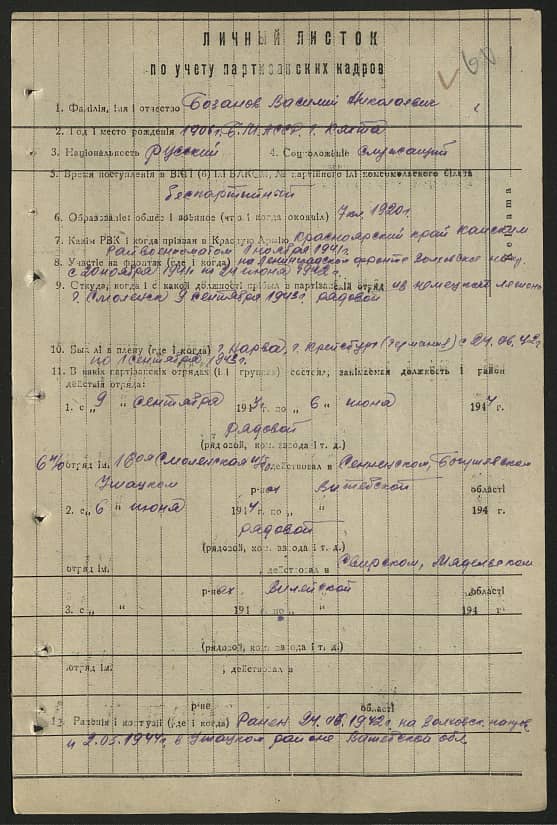 60
ЛИЧНЫЙ ЛИСТОК
по учету партизанских кадров
1. Фамілія, імя і отчество Бозанов Василий Николаевич
2. Год і место рождения 1906 г. Б.М.АССР г. Кяхта
3. Національность Русский 4. Соцположение служащий
5. Время поступления в ВКП (б) ілі ВЛКСМ, № партийного ілі комсомольского білета
беспартийный
6. Образованіе: общее і военное (что і когда окончіл) 7 кл. 1920 г.
7. Какім РВК і когда прізван в Красную Армію Красноярский край Канским
Райвоенкоматом 1 ноября 1941 г.
8. Участіе на фронтах (где і когда) на Ленинградском фронте Волховское нап.
с ноября 1941 г. по 24 июня 1942 г.
9. Откуда, когда і с какой должності прібыл в партізанскій отряд из немецкой
г. Смоленск 9 сентября 1943 г. рядовой
10. Был лі в плену (где і когда) г. Нарва, г. (Германия) с 24.06.42 г.
по 1 сентября 1943 г.
11. В каких партізанскіх отрядах (ілі группах) состоял, занімаемая должность і район
действій отряда:
1. с „ 9 „ сентября 194 г. по „ 6 „ июня 1944 г.
рядовой
(рядовой, ком. взвода і т. д.)
отряд ім. 16 оя Смоленская действовал в Сеннецском, Богушевском
Ушацком р-нах Витебской області
2. с „ 6 „ июня 194 г. по „ „ 194 г.
рядовой
(рядовой, ком. взвода і т. д.)
отряд ім. , действовал в Свирском, Мядельском
р-нах Вилейской області
3. с „ „ 194 г. по „ „ 194 г.
(рядовой, ком. взвода і т. д.)
отряд ім. , действовал в
р-не області
13. Раненія і контузіі (где і когда) Ранен 24.06.1942 г. на Волховск. напр.
и 2.05.1944 г. в Ушацком районе Витебской обл.